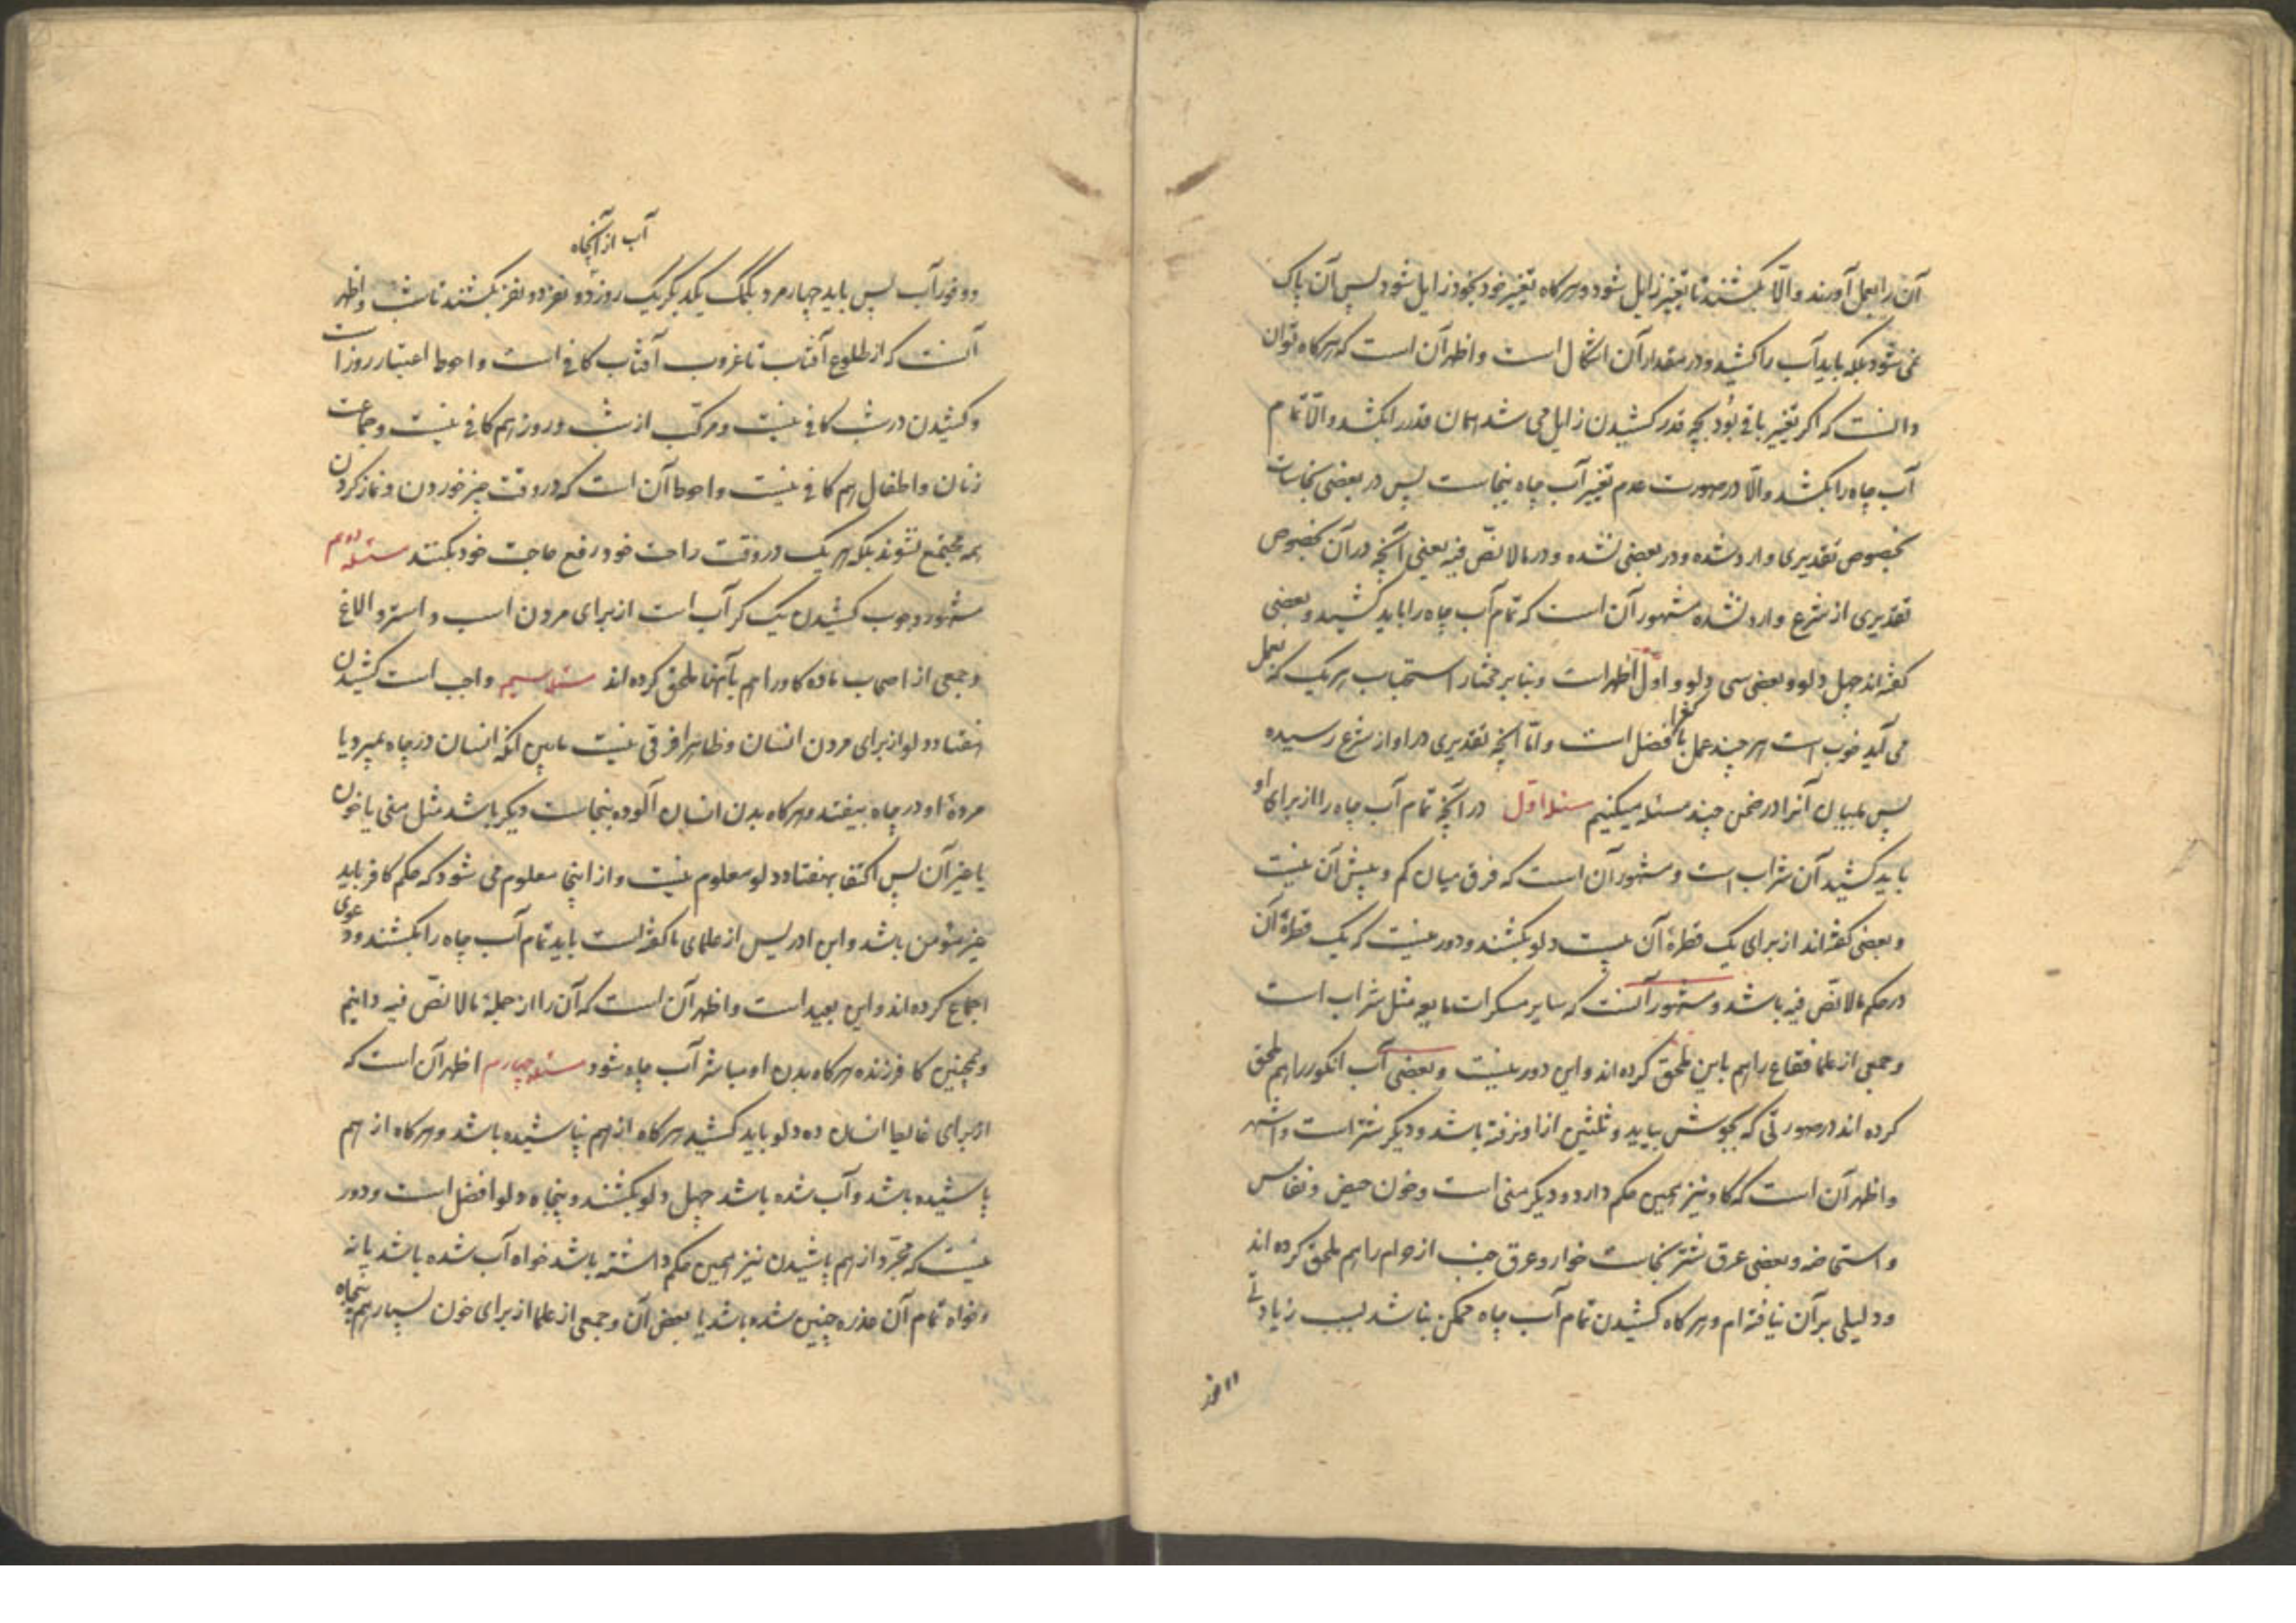 آن را بعمل آورند والّا بکشند تا تغییر زایل شود و هرگاه تغییر خود بخود زایل شود پس آن پاک
نمی شود بلکه باید آب را کشید و در مقدار آن اشکال است و اظهر آن است که هرگاه توان
دانست که اگر تغییر باقی بود بچه قدر کشیدن زایل می شد همان قدر را بکشند والّا تمام
آب چاه را بکشند والّا در صورت عدم تغییر آب چاه بنجاست پس در بعضی نجاسات
بخصوص تقدیری وارد شده و در بعضی نشده و در مالا نصّ فیه یعنی آنچه در آن بخصوص
تقدیری از شرع وارد نشده مشهور آن است که تمام آب چاه را باید کشید و بعضی
گفته اند چهل دلو و بعضی سی دلو و اوّل اظهر است و بنا بر مختار استحباب هر یک که بعمل
می آید خوب است هر چند عمل با کثر افضل است و امّا آنچه تقدیری در او از شرع رسیده
پس بیان آنرا در ضمن چند مسئله میکنیم مسئله اوّل در آنچه تمام آب چاه را از برای او
باید کشید آن شراب است و مشهور آن است که فرق میان کم و بیش آن نیست
و بعضی گفته اند از برای یک قطرهٔ آن بیست دلو بکشند و دور نیست که یک قطرهٔ آن
در حکم مالا نصّ فیه باشد و مشهور آنست که سایر مسکرات مایعه مثل شراب است
و جمعی از علما فقاع را هم باین ملحق کرده اند و این دور نیست و بعضی آب انگور را هم ملحق
کرده اند در صورتی که بجوش بیاید و ثلثین از او نرفته باشد و دیگر شتر است و اشهر
و اظهر آن است که گاو نیز همین حکم دارد و دیگر منی است و خون حیض و نفاس
و استحاضه و بعضی عرق شتر نجاست خوار و عرق جنب از حرام را هم ملحق کرده اند
و دلیلی بر آن نیافته ام و هرگاه کشیدن تمام آب چاه ممکن نباشد بسبب زیادتی
آب از آنچاه
و وفور آب پس باید چهار مرد بکمک یکدیگر یک روز دو نفر دو نفر بکشند تا شب و اظهر
آنست که از طلوع آفتاب تا غروب آفتاب کافی است و احوط اعتبار روز است
و کشیدن در شب کافی نیست و مرکّب از شب و روز هم کافی نیست و جماعت
زنان و اطفال هم کافی نیست و احوط آن است که در وقت چیز خوردن و نماز کردن
همه مجتمع نشوند بلکه هر یک در وقت راحت خود رفع حاجت خود بکنند مسئله دویم
مشهور وجوب کشیدن یک کر آب است از برای مردن اسب و استر و الاغ
و جمعی از اصحاب ماده گاو را هم بآنها ملحق کرده اند مسئله سیم واجب است کشیدن
هفتاد دلو از برای مردن انسان و ظاهرا فرقی نیست مابین آنکه انسان در چاه بمیرد یا
مردهٔ او در چاه بیفتد و هرگاه بدن انسان آلوده بنجاست دیگر باشد مثل منی یا خون
یا غیر آن پس اکتفا بهفتاد دلو معلوم نیست و از اینجا معلوم می شود که حکم کافر باید
غیر مؤمن باشد و ابن ادریس از علمای ما گفته است باید تمام آب چاه را بکشند و دعوی
اجماع کرده اند و این بعید است و اظهر آن است که آن را از جملهٔ مالا نصّ فیه دانیم
و همچنین کافر زنده هرگاه بدن او مباشر آب چاه شود مسئله چهارم اظهر آن است که
از برای غایط انسان ده دلو باید کشید هرگاه از هم نپاشیده باشد و هرگاه از هم
پاشیده باشد و آب شده باشد چهل دلو بکشند و پنجاه دلو افضل است و دور
نیست که مجرّد از هم پاشیدن نیز همین حکم داشته باشد خواه آب شده باشد یا نه
و خواه تمام آن عذره چنین شده باشد یا بعض آن و جمعی از علما از برای خون بسیار هم پنجاه